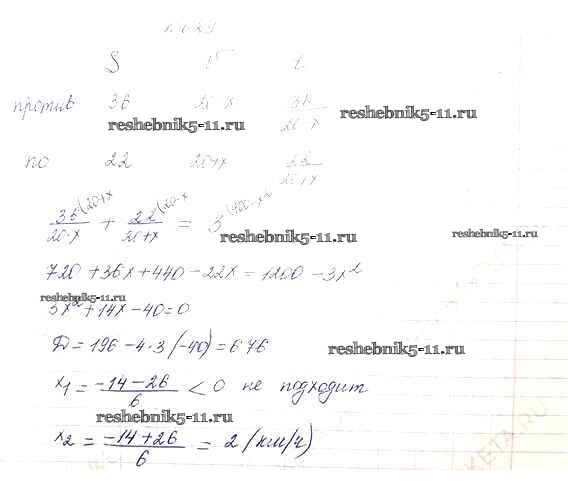 S V t
против 36 20-x 36/20-x
reshebnik5-11.ru reshebnik5-11.ru
по 22 20+x 22/20+x
36/20-x (20+x + 22/20+x (20-x = 3 (400-x²
reshebnik5-11.ru reshebnik5-11.ru
720 + 36x + 440 - 22x = 1200 - 3x²
reshebnik5-11.ru
3x² + 14x - 40 = 0
D = 196 - 4·3(-40) = 676
reshebnik5-11.ru
x₁ = -14-26/6 < 0 не подходит
reshebnik5-11.ru
x₂ = -14+26/6 = 2 (км/ч)